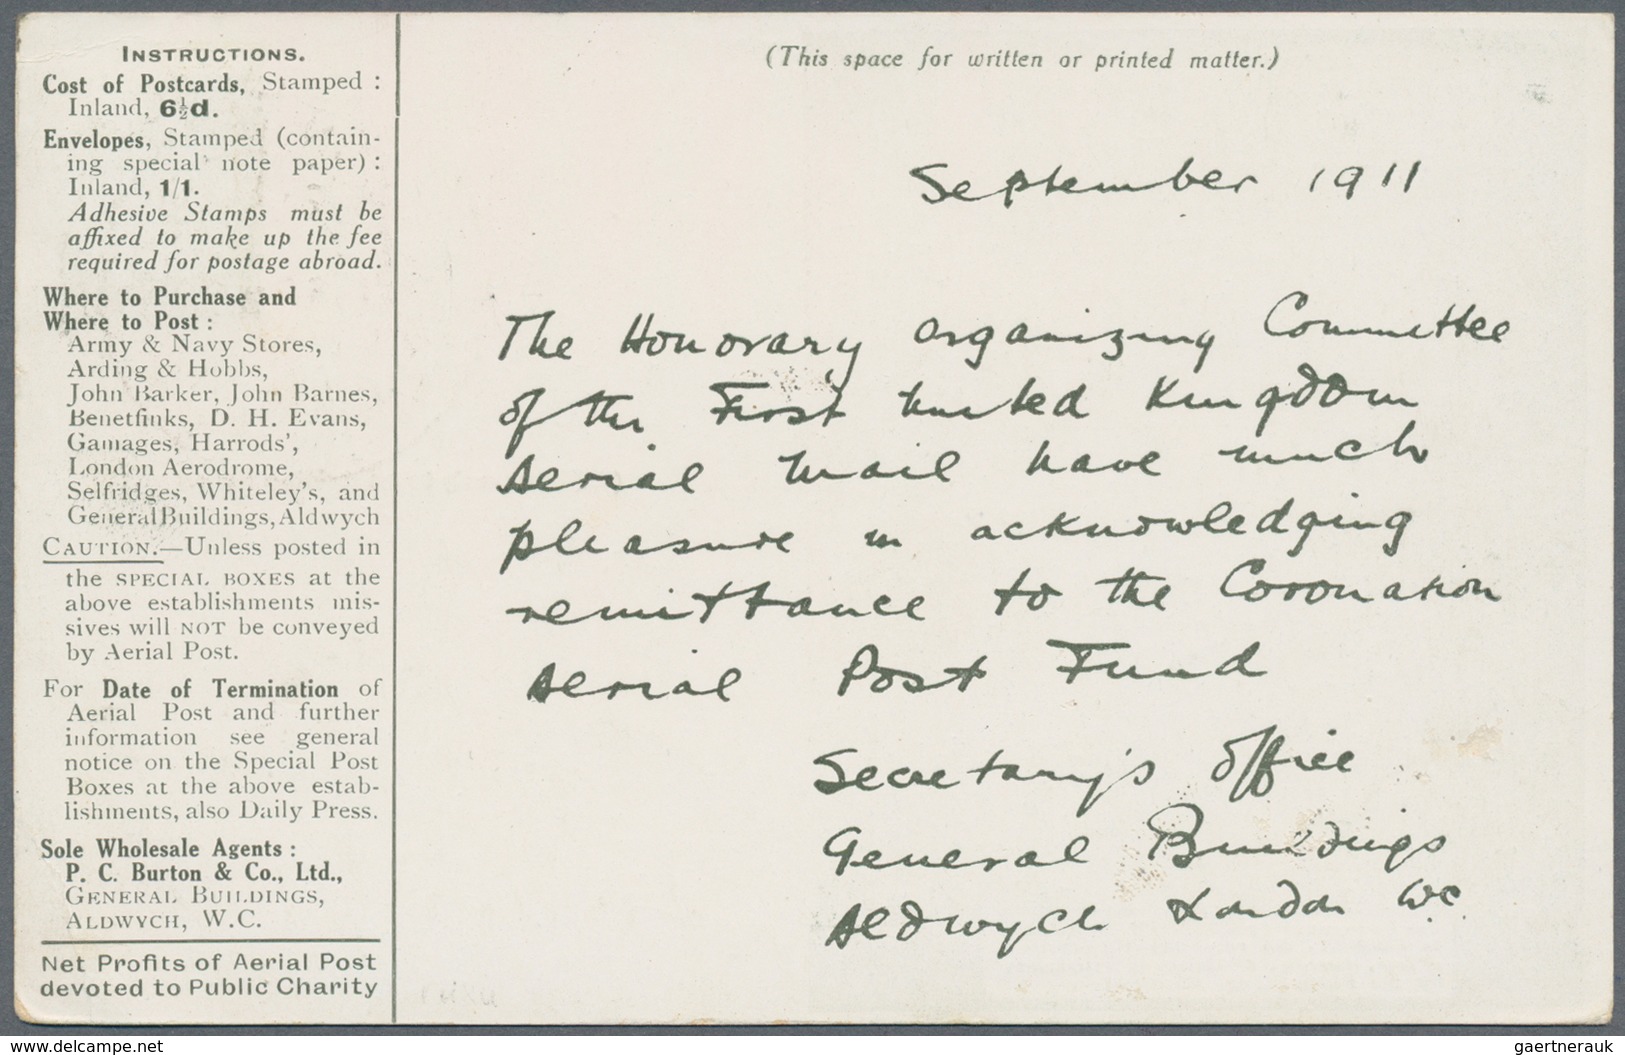 INSTRUCTIONS.
Cost of Postcards, Stamped :
Inland, 6½d.
Envelopes, Stamped (contain-
ing special note paper) :
Inland, 1/1.
Adhesive Stamps must be
affixed to make up the fee
required for postage abroad.
Where to Purchase and
Where to Post :
Army & Navy Stores,
Arding & Hobbs,
John Barker, John Barnes,
Benetfinks, D. H. Evans,
Gamages, Harrods',
London Aerodrome,
Selfridges, Whiteley's, and
General Buildings, Aldwych
CAUTION.—Unless posted in
the SPECIAL BOXES at the
above establishments mis-
sives will NOT be conveyed
by Aerial Post.
For Date of Termination of
Aerial Post and further
information see general
notice on the Special Post
Boxes at the above estab-
lishments, also Daily Press.
Sole Wholesale Agents :
P. C. Burton & Co., Ltd.,
GENERAL BUILDINGS,
ALDWYCH, W.C.
Net Profits of Aerial Post
devoted to Public Charity
(This space for written or printed matter.)
September 1911
The Honorary Organizing Committee
of the First United Kingdom
Aerial Mail have much
pleasure in acknowledging
remittance to the Coronation
Aerial Post Fund
Secretary's Office
General Buildings
Aldwych London WC
delcampe.net
gaertnerauk